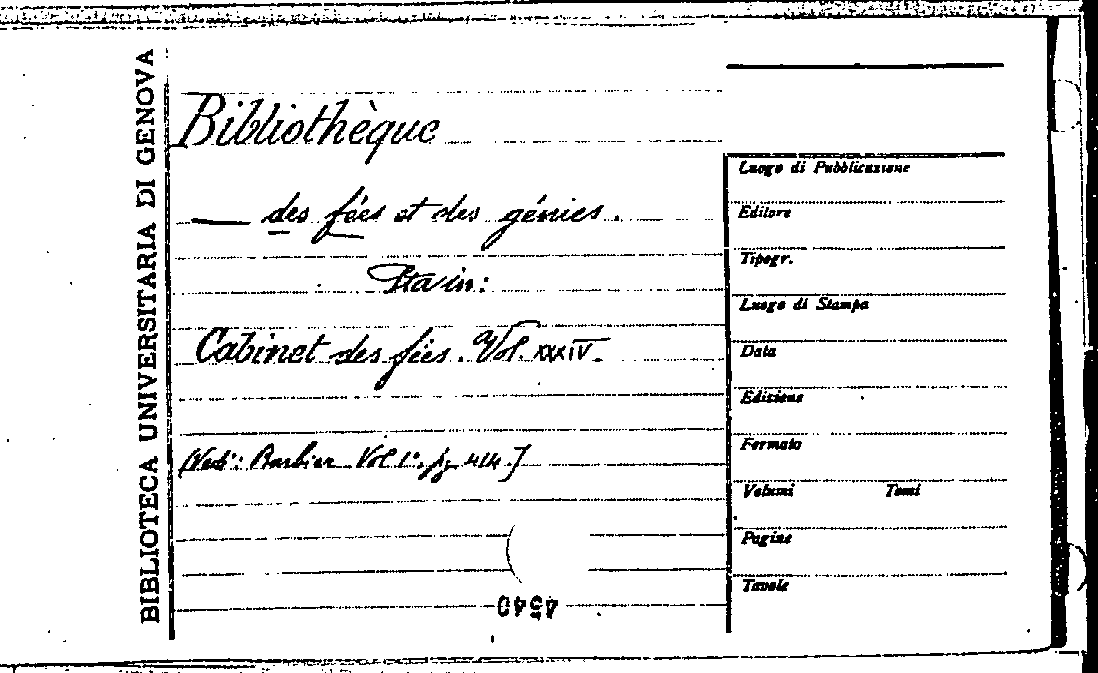 BIBLIOTECA UNIVERSITARIA DI GENOVA
Bibliothèque
— des fées et des génies.
Sta in:
Cabinet des fées. Vol. XXXIV.
[Vedi: Barbier Vol 1º. pg 414.]
4540
Luogo di Pubblicazione
Editore
Tipogr.
Luogo di Stampa
Data
Edizione
Formato
Volumi Tomi
Pagine
Tavole